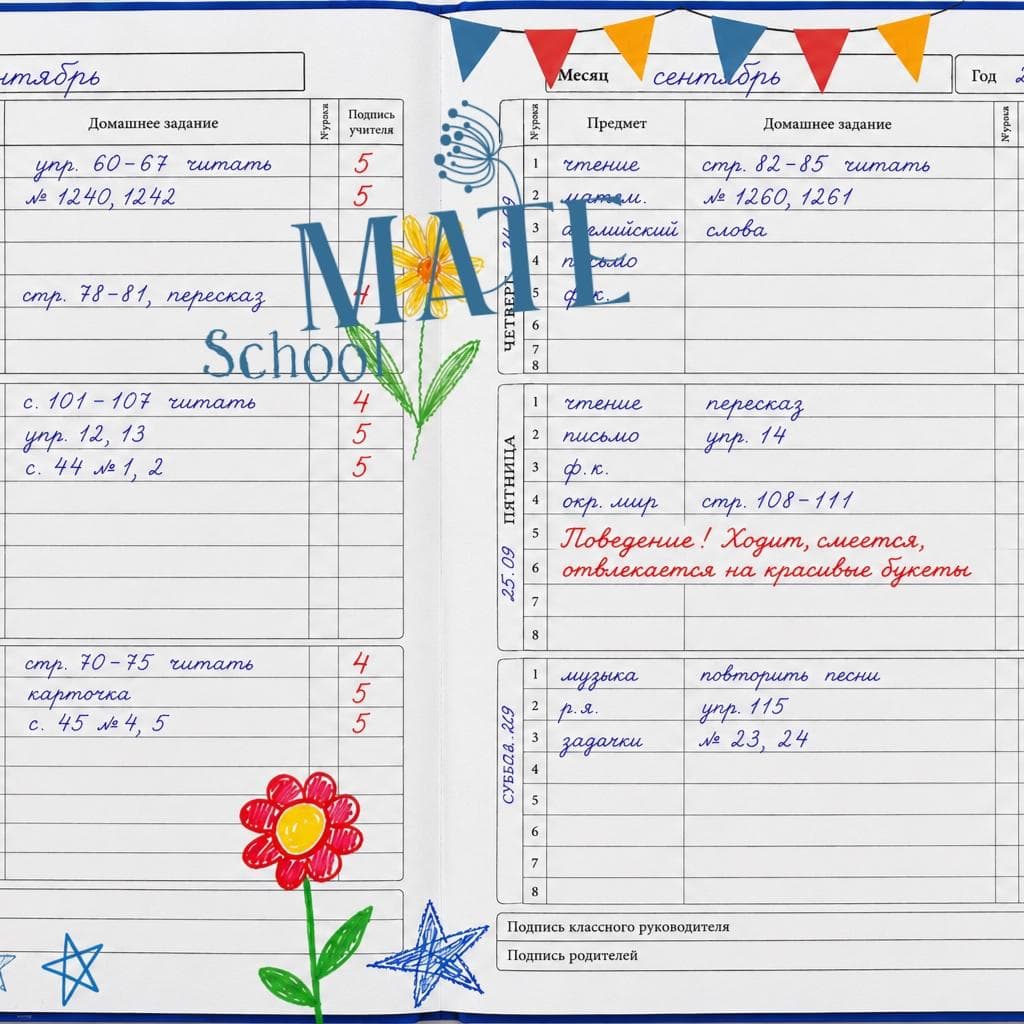 нтябрь
Домашнее задание № урока Подпись учителя
упр. 60-67 читать 5
№ 1240, 1242 5
стр. 78-81, пересказ 4
с. 101-107 читать 4
упр. 12, 13 5
с. 44 № 1, 2 5
стр. 70-75 читать 4
карточка 5
с. 45 № 4, 5 5
MATE
School
Месяц сентябрь Год 2
№ урока Предмет Домашнее задание № урока
ЧЕТВЕРГ 24.09
1 чтение стр. 82-85 читать
2 матем. № 1260, 1261
3 английский слова
4 письмо
5 ф.к.
6
7
8
ПЯТНИЦА 25.09
1 чтение пересказ
2 письмо упр. 14
3 ф.к.
4 окр. мир стр. 108-111
5 Поведение! Ходит, смеется,
6 отвлекается на красивые букеты
7
8
1 музыка повторить песни
2 р.я. упр. 115
3 задачки № 23, 24
4
5
6
7
8
Подпись классного руководителя
Подпись родителей